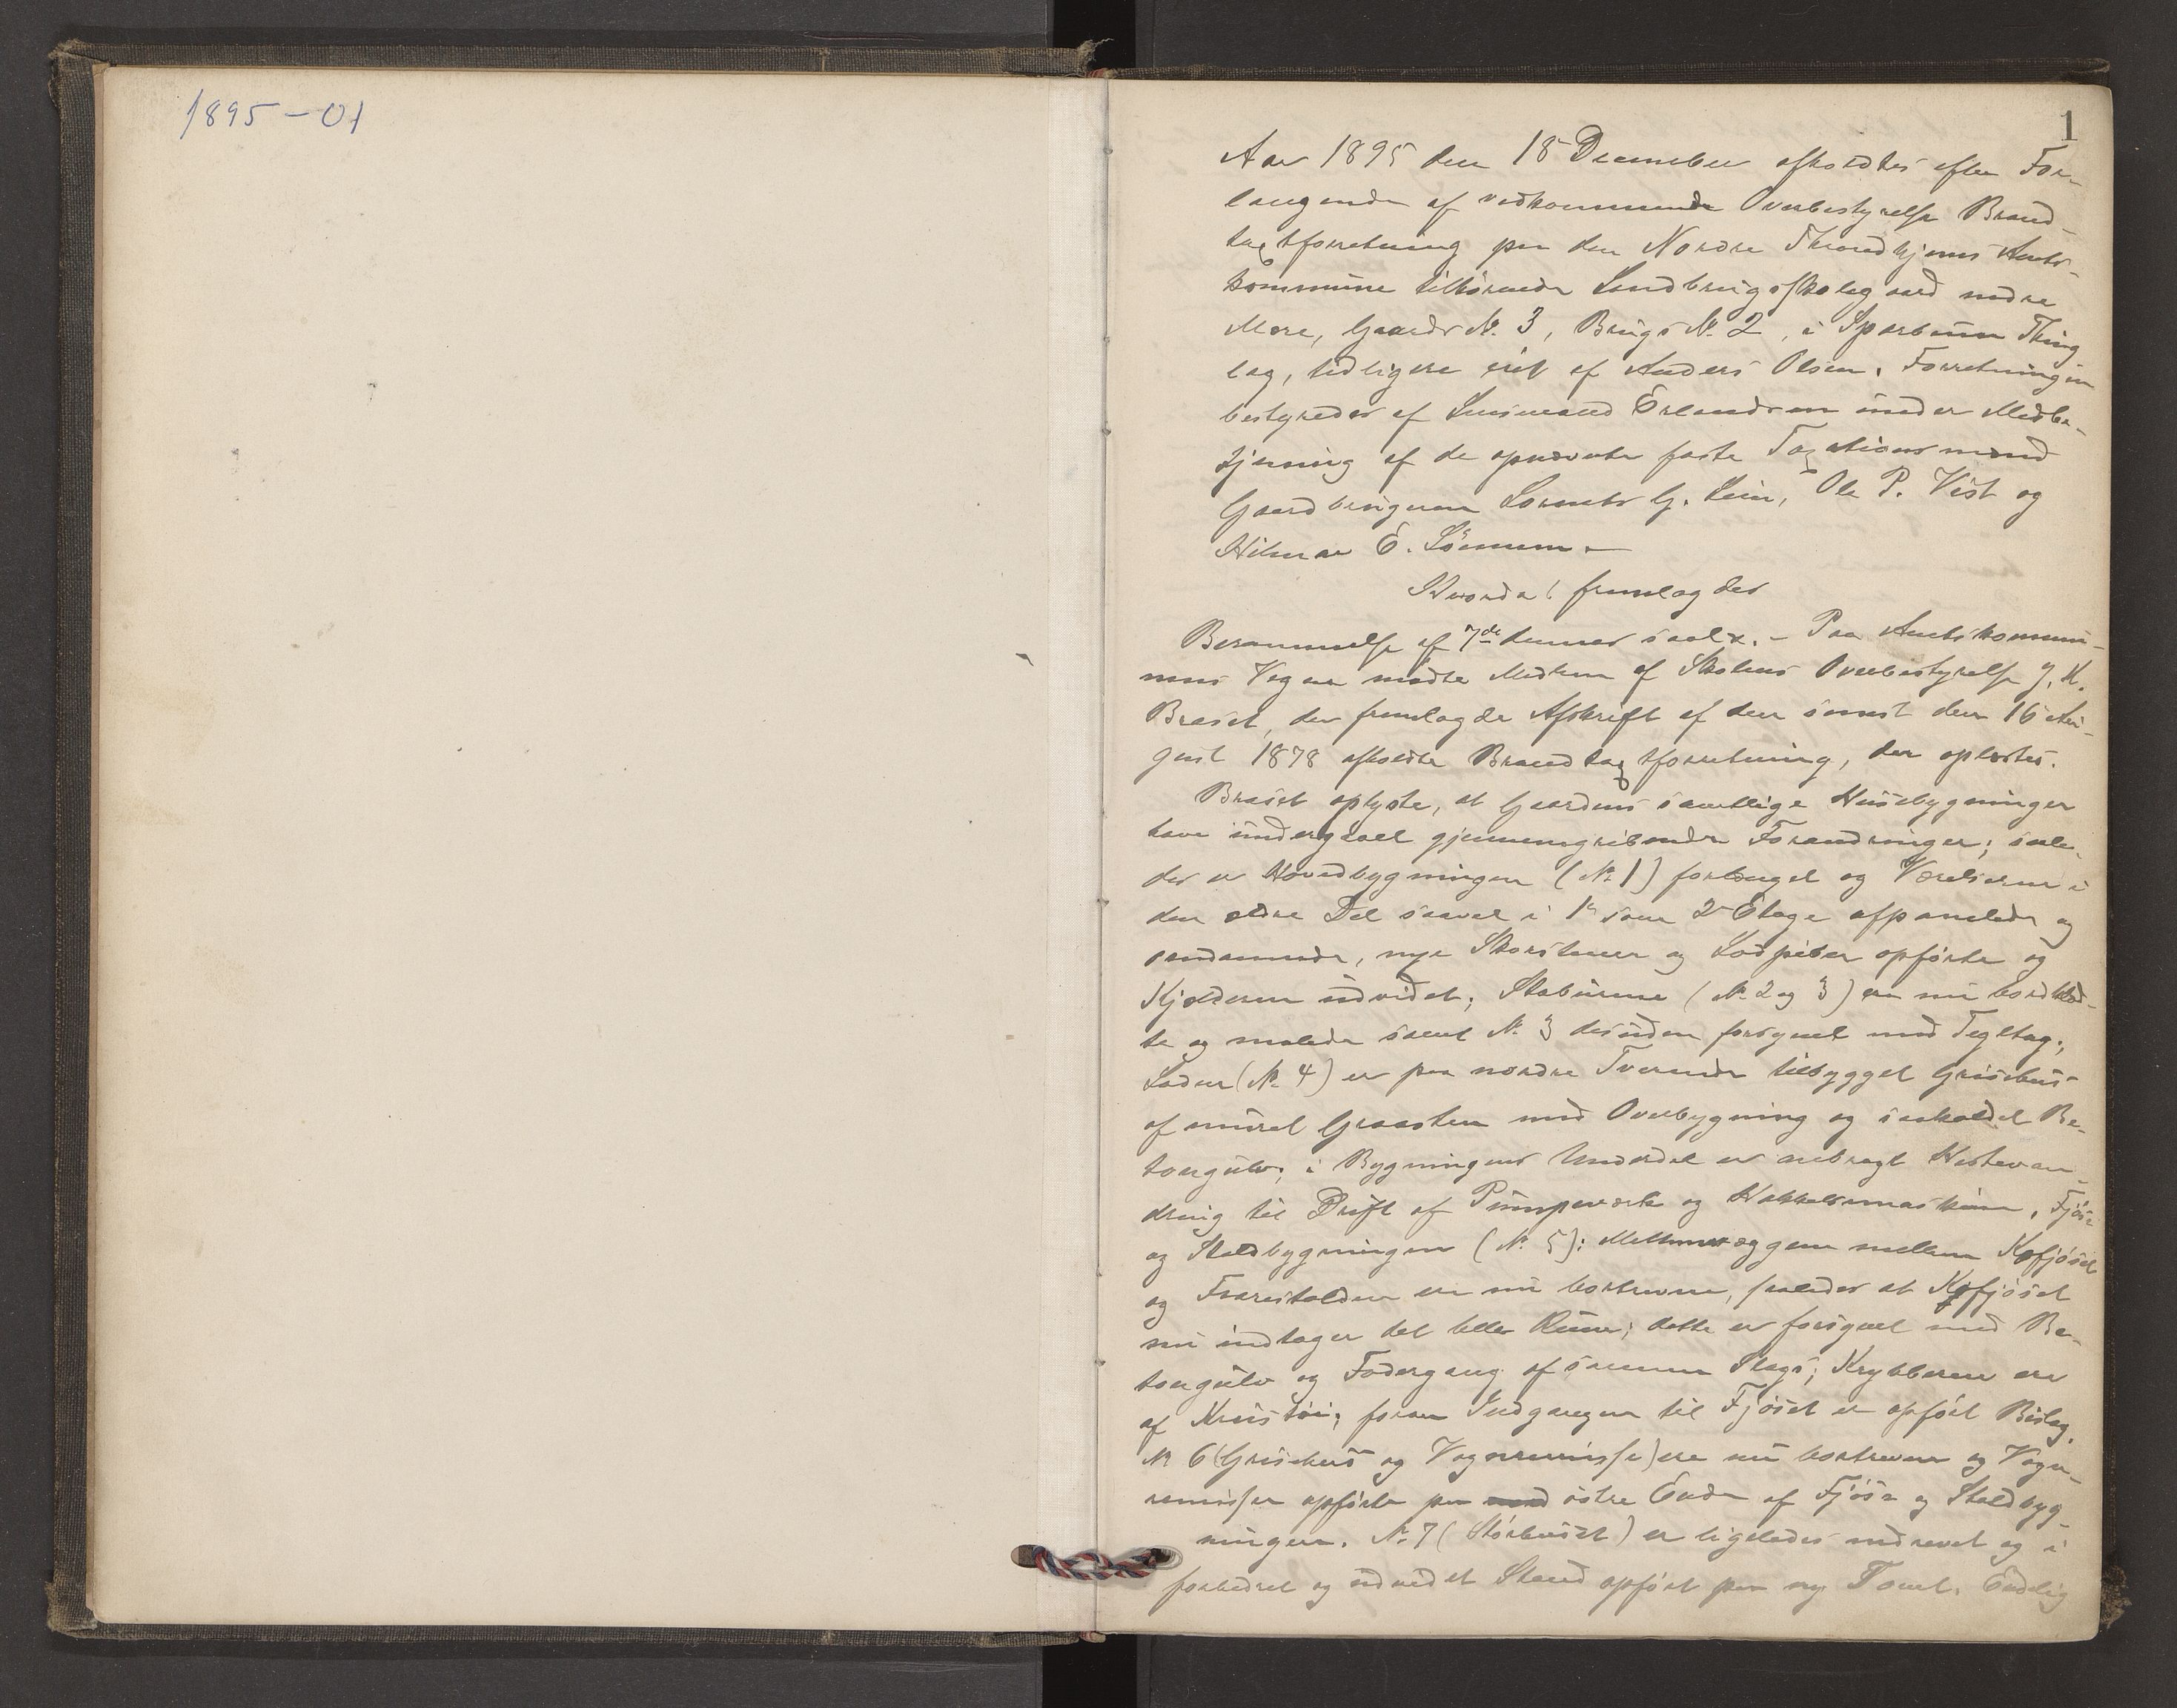 1895-01
1
Aar 1895 den 18 December afholdtes efter For-
langende af vedkommende Overbestyrelse Brand-
taxtforretning paa den Nordre Throndhjems Amts-
kommune tilhørende Landbrugsskolegaard nedre
Mære, Gaards No. 3, Brugs No. 2, i Sparbuen Thing
lag, tidligere eiet af Anders Olsen. Forretningen
bestyredes af Lensmand Erlandsen under Medbe-
tjening af de opnævnte faste Taxationsmænd
Gaardbrugerne Lorents G. Lein, Ole P. Vist og
Hilmar E. Lönnum.
Hvorda! fremlagdes
Berammelse af 7de dennes saal. - Paa Amtskommu-
nens Vegne mødte Medlem af Skolens Overbestyrelse J. K.
Braset, der fremlagde Afskrift af den senest den 16 Au-
gust 1878 afholdte Brandtaxtforretning, der oplæstes.
Braset oplyste, at Gaardens samtlige Husebygninger
have undergaaet gjennemgribende Forandringer; saale-
des er Hovedbygningen (No 1) forlænget og Værelserne i
den ældre Del saavel i 1ste som 2den Etage afpanelede og
omdannede, nye Skorstener og Lodpiber opförte og
Kjælderen udvidet; Staburene (No 2 og 3) ere nu bordklæd-
te og malede samt No. 3 desuden forsynet med Tegltag;
Laden (No 4) er paa nordre Tverende tilbygget Grisehus
af muret Graasten med Overbygning og saakaldet Be-
tongulv; i Bygningens Underdel er anbragt Hestevan-
dring til Drift af Pumpeværk og Hakkelsmaskine. Fjös-
og Staldbygningen (No. 5): Mellemvæggene mellem Kofjöset
og Faarestalden ere nu bortrevne, saaledes at Kofjöset
nu indtager det hele Rum; dette er forsynet med Be-
tongulv og Fodergang af samme Slags; Krybberne ere
af Krustöi; foran Indgangen til Fjöset er opfört Bislag.
No 6 (Grisehus og Vognremisse) ere nu bortrevne og Vogn-
remisser opförte paa östre Ende af Fjös- og Staldbyg-
ningen. No 7 (Störhuset) er ligeledes nedrevet og i
forbedret og udvidet Stand opfört paa ny Tomt. Endelig